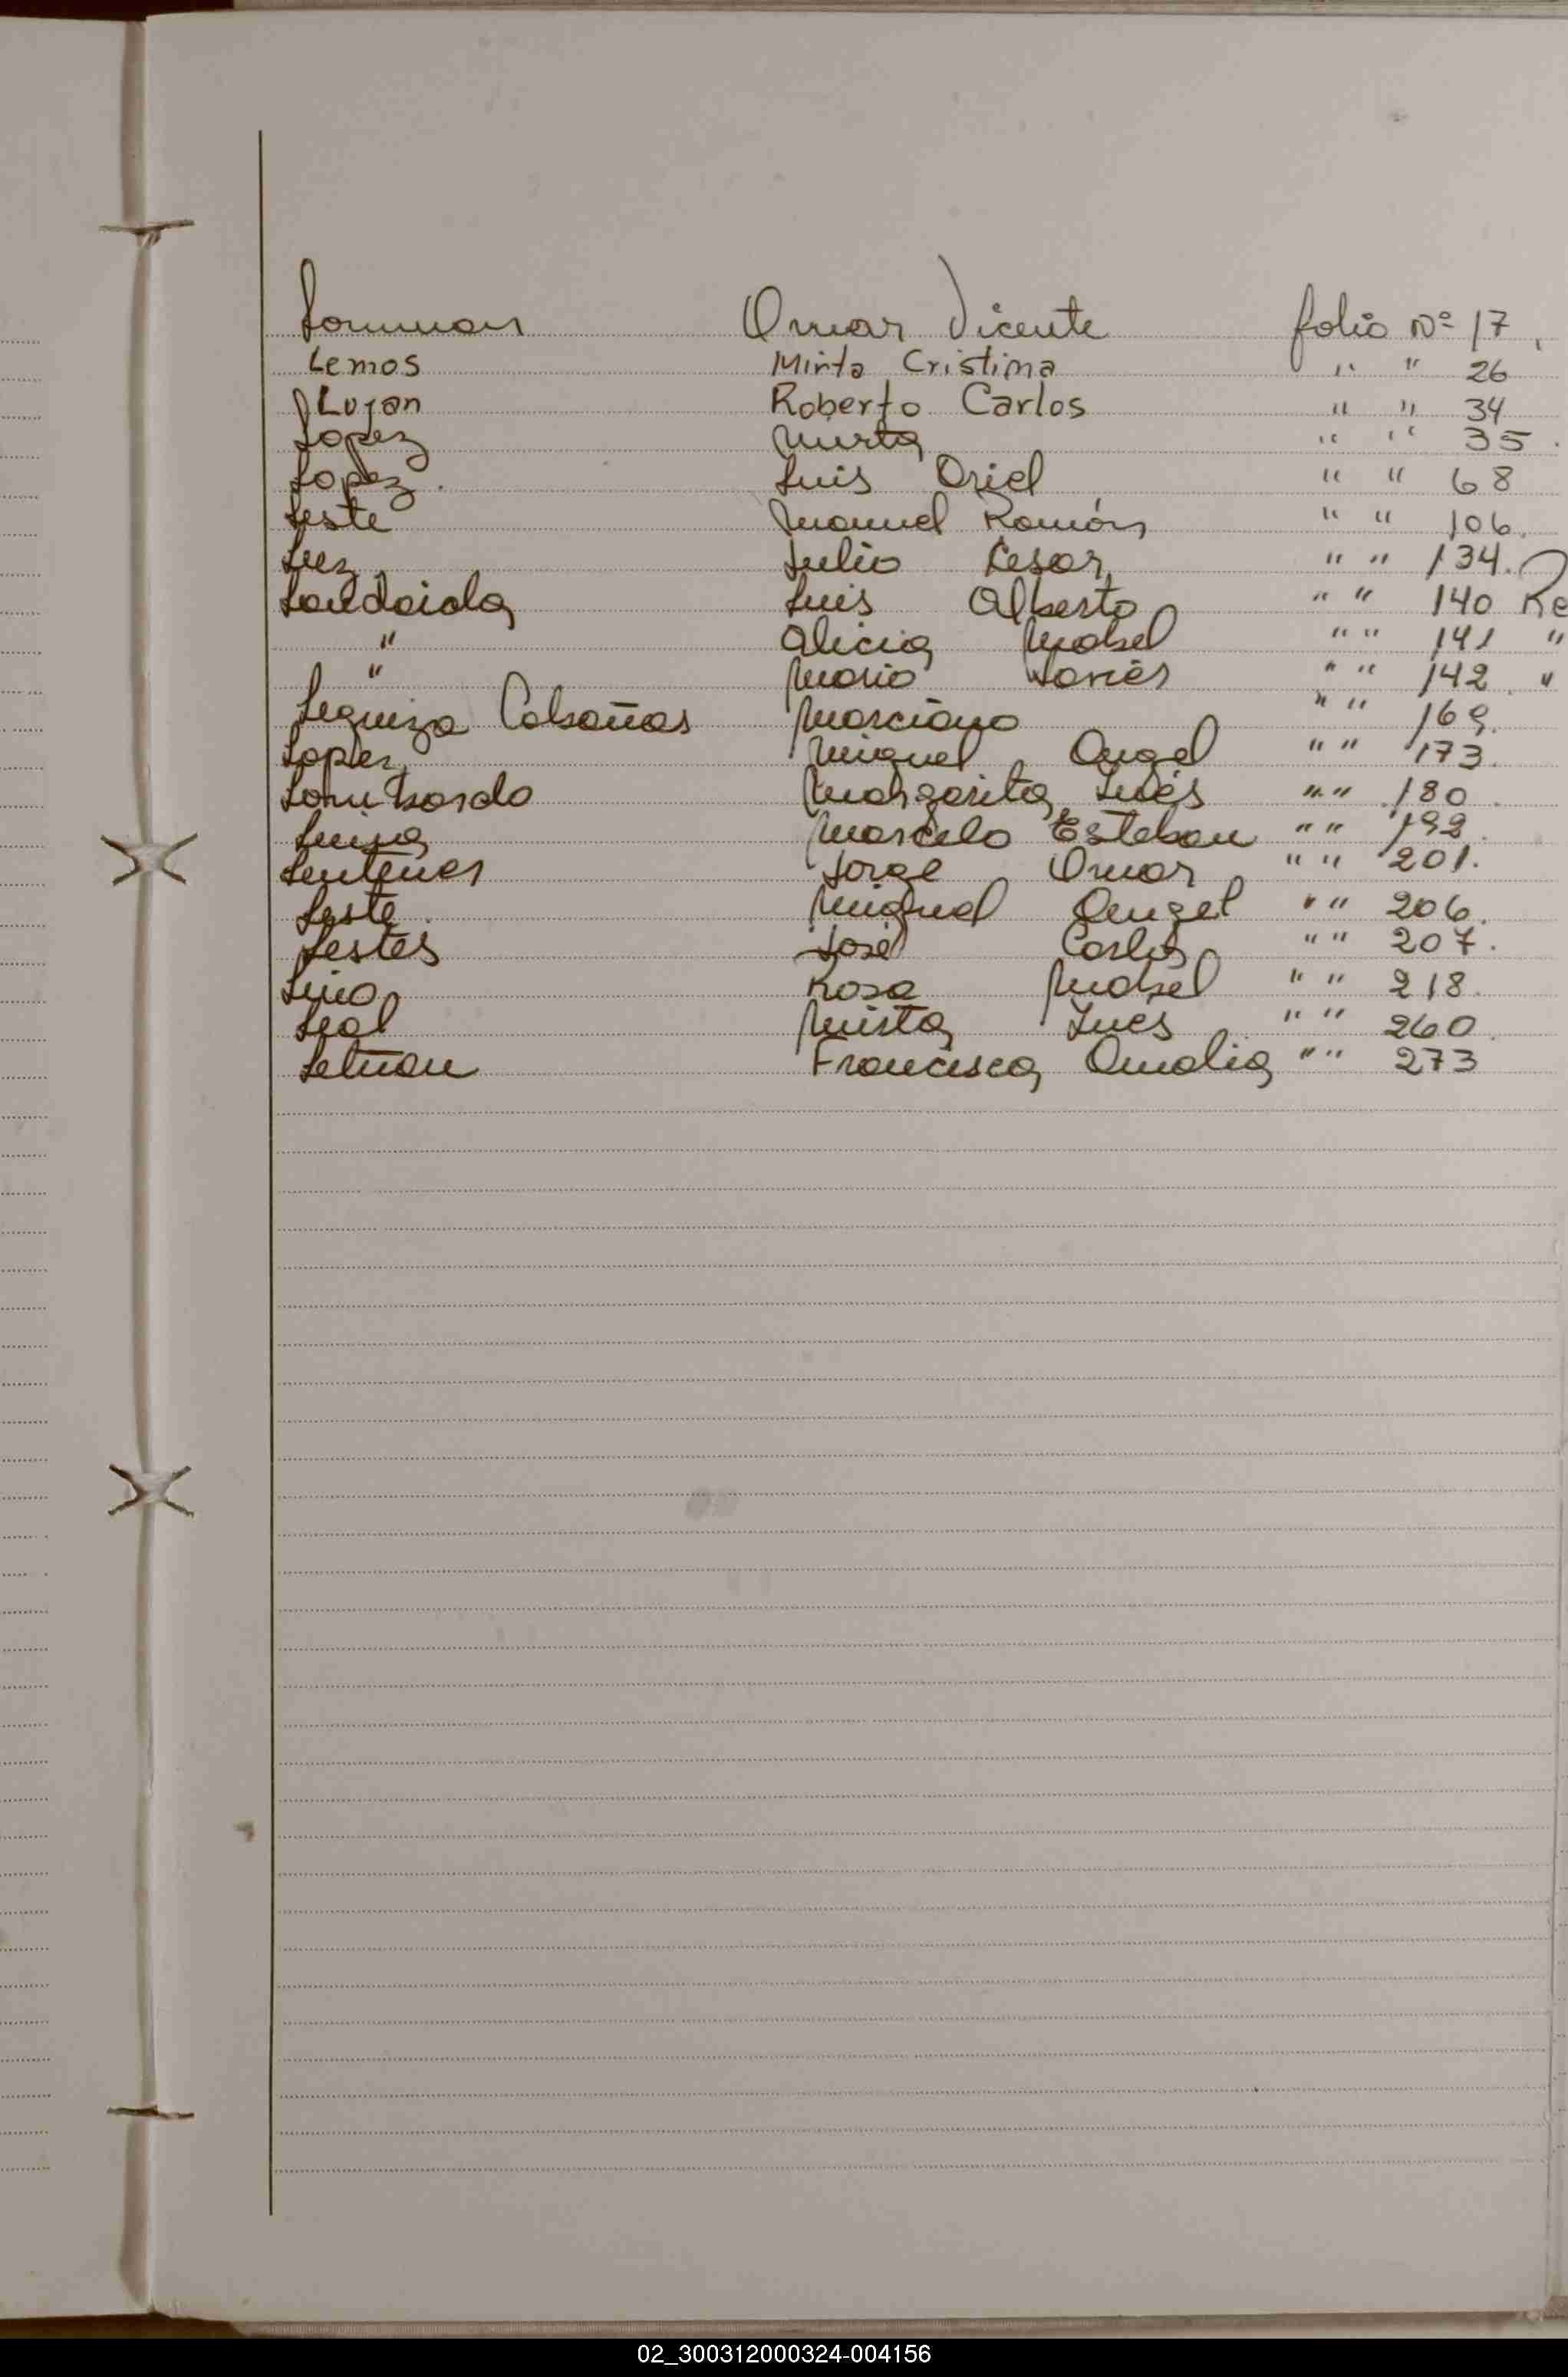 Omar Vicente folio Nº 17
Lemos Mirta Cristina " " 26
Lujan Roberto Carlos " " 34
Lopez Mirta " " 35.
Lopez. Luis Oriel " " 68
Leste Manuel Ramón " " 106.
Luz Julio Cesar " " 134.
Landaida Luis Alberto " " 140 Re
" Alicia Mabel " " 141 "
" Mario Javier " " 142 "
Leguiza Cabañas Marciano " " 169.
Lopez Miguel Angel " " 173.
Lombardo Margarita Inés " " 180.
Marcelo Esteban " " 192.
Jorge Omar " " 201.
Leste. Miguel Angel " " 206.
Lestes José Carlos " " 207.
Lino Rosa Mabel " " 218.
Leal Mirta Ines " " 260.
Francisca Amalia " " 273
02_300312000324-004156